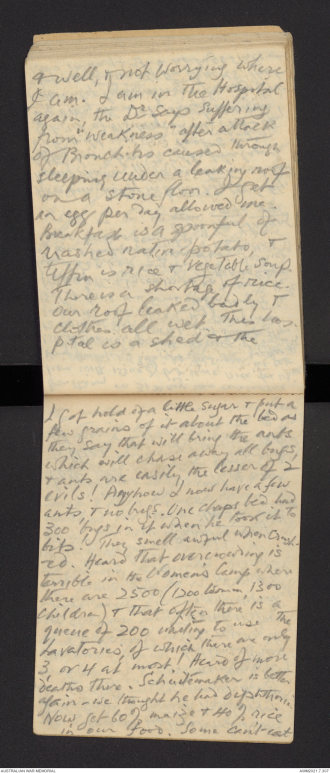 & well, & not worrying where
I am. I am in the Hospital
again, the Dr says suffering
from "weakness" after attack
of Bronchitis caused through
sleeping under a leaking roof
on a stone floor. I get
an egg per day allowed me.
Breakfast is a spoonful of
mashed native potato, &
Tiffin is rice & vegetable soup.
There is a shortage of rice.
Our roof leaked badly &
clothes all wet. This hos-
pital is a shed & the
I got hold of a little sugar & put a
few grains of it about the bed as
they say that will bring the ants
which will chase away all bugs,
& ants are easily the lesser of 2
evils! Anyhow I now have a few
ants, & no bugs. One chaps bed had
300 bugs in it when he took it to
bits. They smell awful when crush-
ed. Heard that overcrowding is
terrible in the Women's Camp where
there are 2500 (1200 women, 1300
children) & that often there is a
queue of 200 waiting to use the
lavatories, of which there are only
3 or 4 at most! Heard of more
deaths there. Schuitemaker is better
again - we thought he had dysentery.
Now get 60% maize & 40% rice
in our food. Some can't eat
AUSTRALIAN WAR MEMORIAL